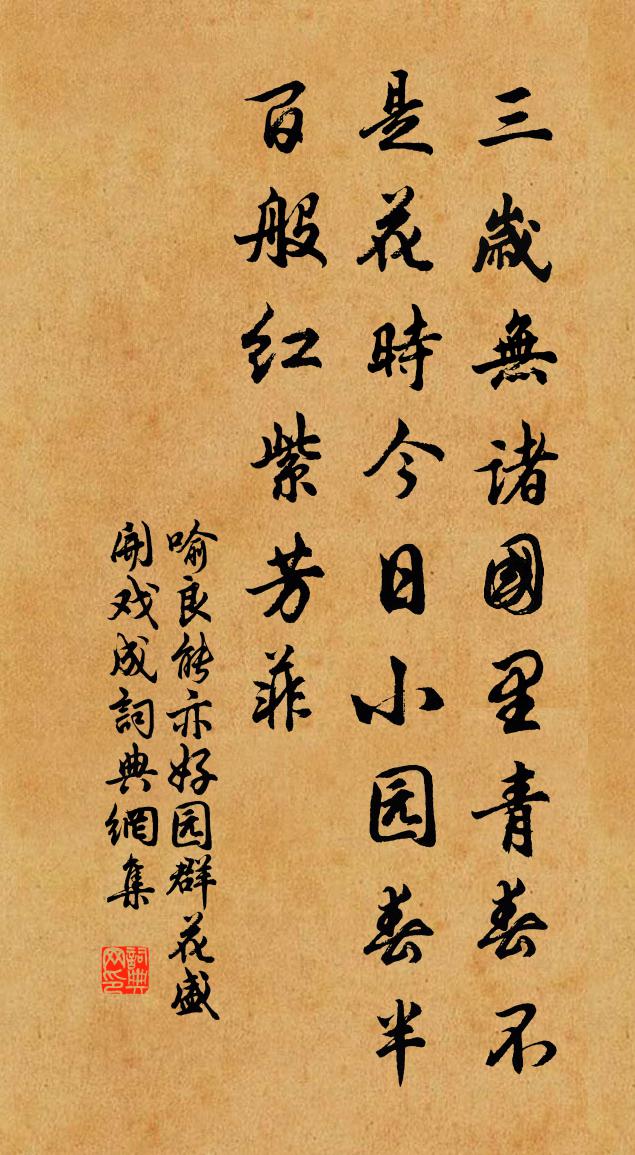 三歲無諸國里青春不
是花時今日小园春半
百般紅紫芳菲
喻良能亦好园群花盛
開戏成詞典網集
詞典网印